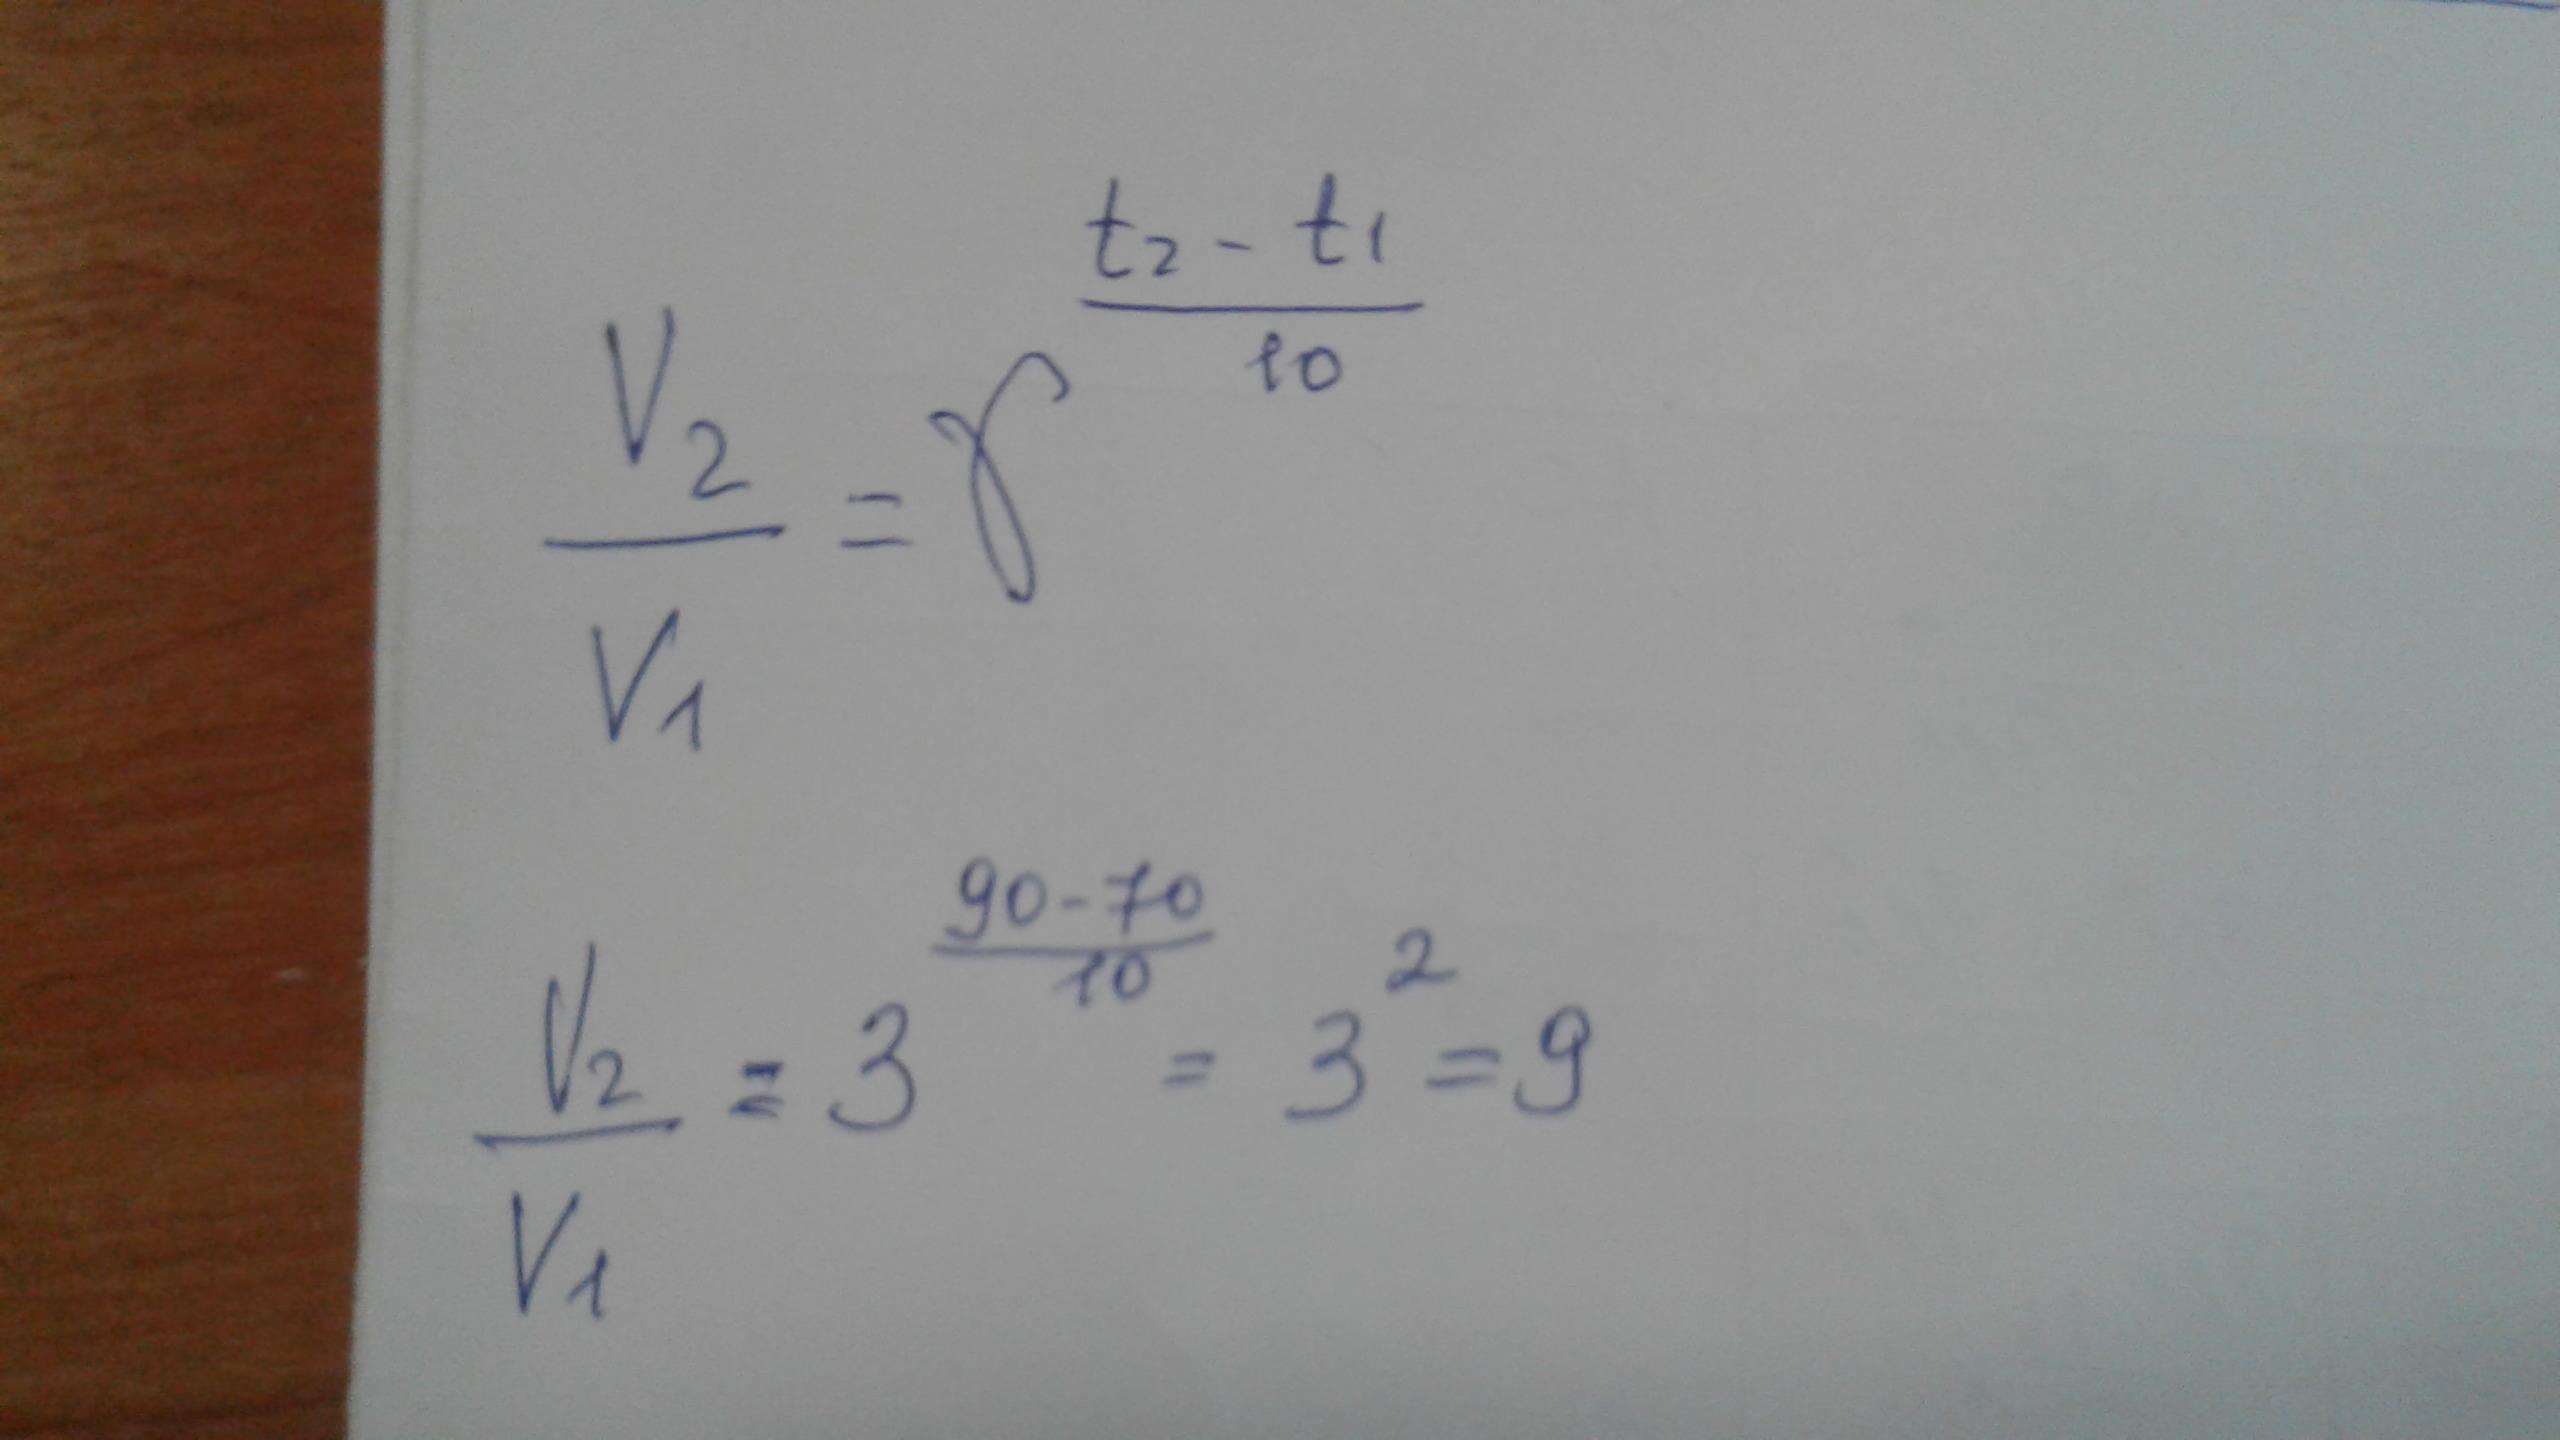 V₂/V₁ = γ^((t₂ - t₁)/10)
V₂/V₁ = 3^((90-70)/10) = 3² = 9